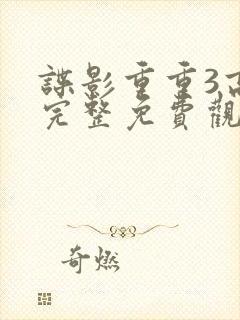 諜影重重3高
完整免費觀
奇燃